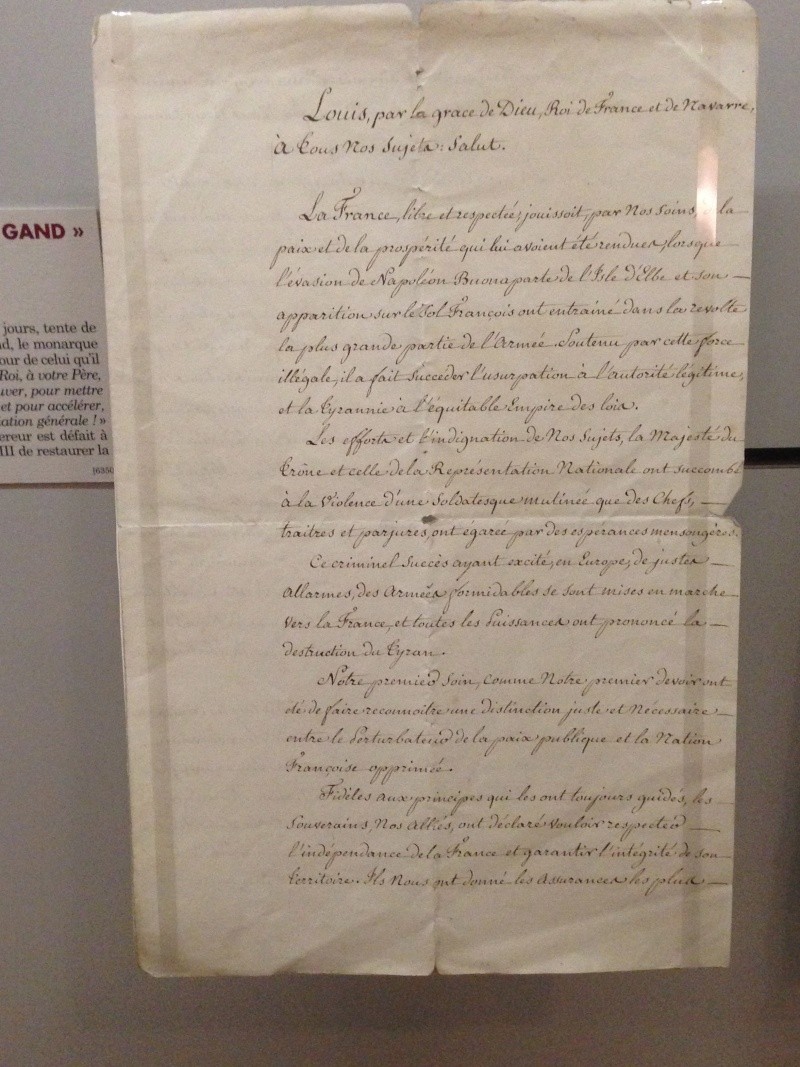 Louis, par la grace de Dieu, Roi de France et de Navarre,
à tous Nos Sujets: Salut.
La France, libre et respectée, jouissoit, par Nos soins, la
paix et de la prospérité qui lui avoient été rendues, lorsque
l'évasion de Napoléon Buonaparte de l'Isle d'Elbe et son
apparition sur le Sol François ont entrainé dans la revolte
la plus grande partie de l'Armée. Soutenu par cette force
illégale, il a fait Succéder l'usurpation à l'autorité légitime,
et la Tyrannie à l'équitable Empire des loix.
Les efforts et l'indignation de Nos Sujets, la Majesté du
Trône et celle de la Représentation Nationale ont succombé
à la Violence d'une Soldatesque mutinée que des Chefs,
traitres et parjures, ont égarée par des espérances mensongères.
Ce criminel Succès ayant excité, en Europe, de justes
Allarmes, des Armées formidables se sont mises en marche
vers la France, et toutes les Puissances ont prononcé la
destruction du Tyran.
Notre premier Soin, comme Notre premier devoir ont
été de faire reconnoitre une distinction juste et Nécessaire
entre le Perturbateur de la paix publique et la Nation
Françoise opprimée.
Fidèles aux principes qui les ont toujours guidés, les
Souverains, Nos Alliés, ont déclaré vouloir respecter
l'indépendance de la France et garantir l'intégrité de son
territoire. Ils Nous ont donné les Assurances les plus
GAND »
jours, tente de
le monarque
our de celui qu'il
Roi, à votre Père,
uver, pour mettre
et pour accélérer,
iation générale ! »
ereur est défait à
III de restaurer la